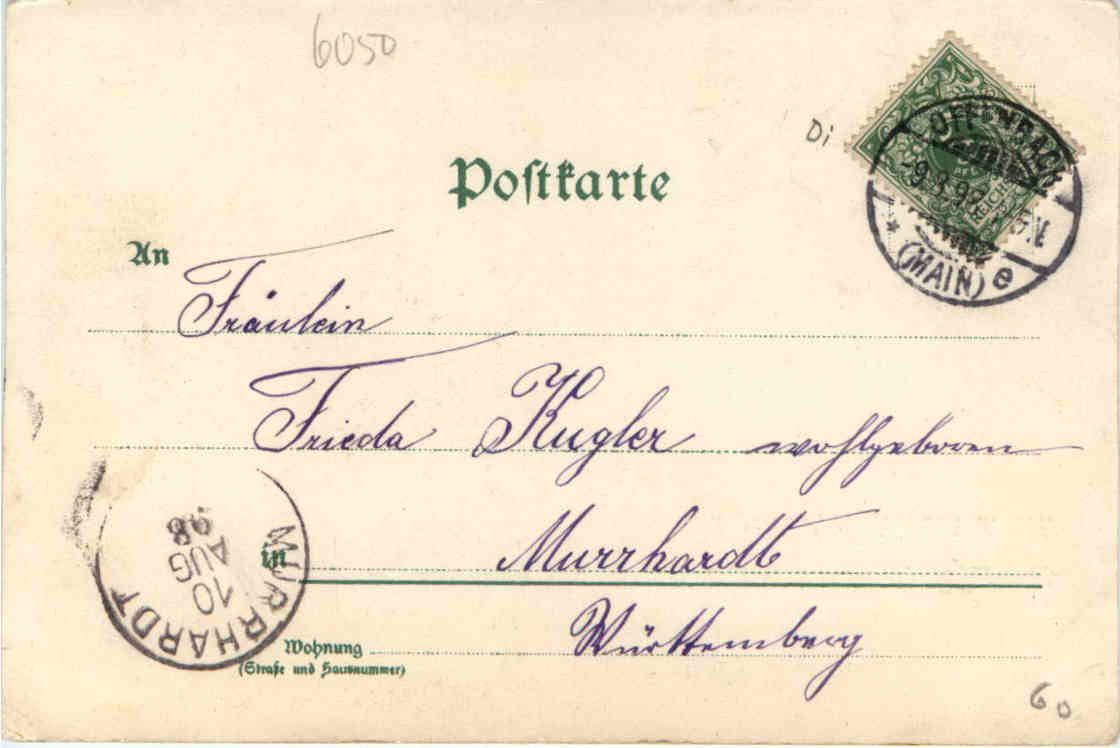 6050
Di
OFFENBACH
(MAIN) e
REICHSPOST
Poſtkarte
An
Fräulein
Frieda Kugler wohlgeboren
in Murrhardt
Württemberg
MURRHARDT
10
AUG
98
Wohnung
(Straße und Hausnummer)
60